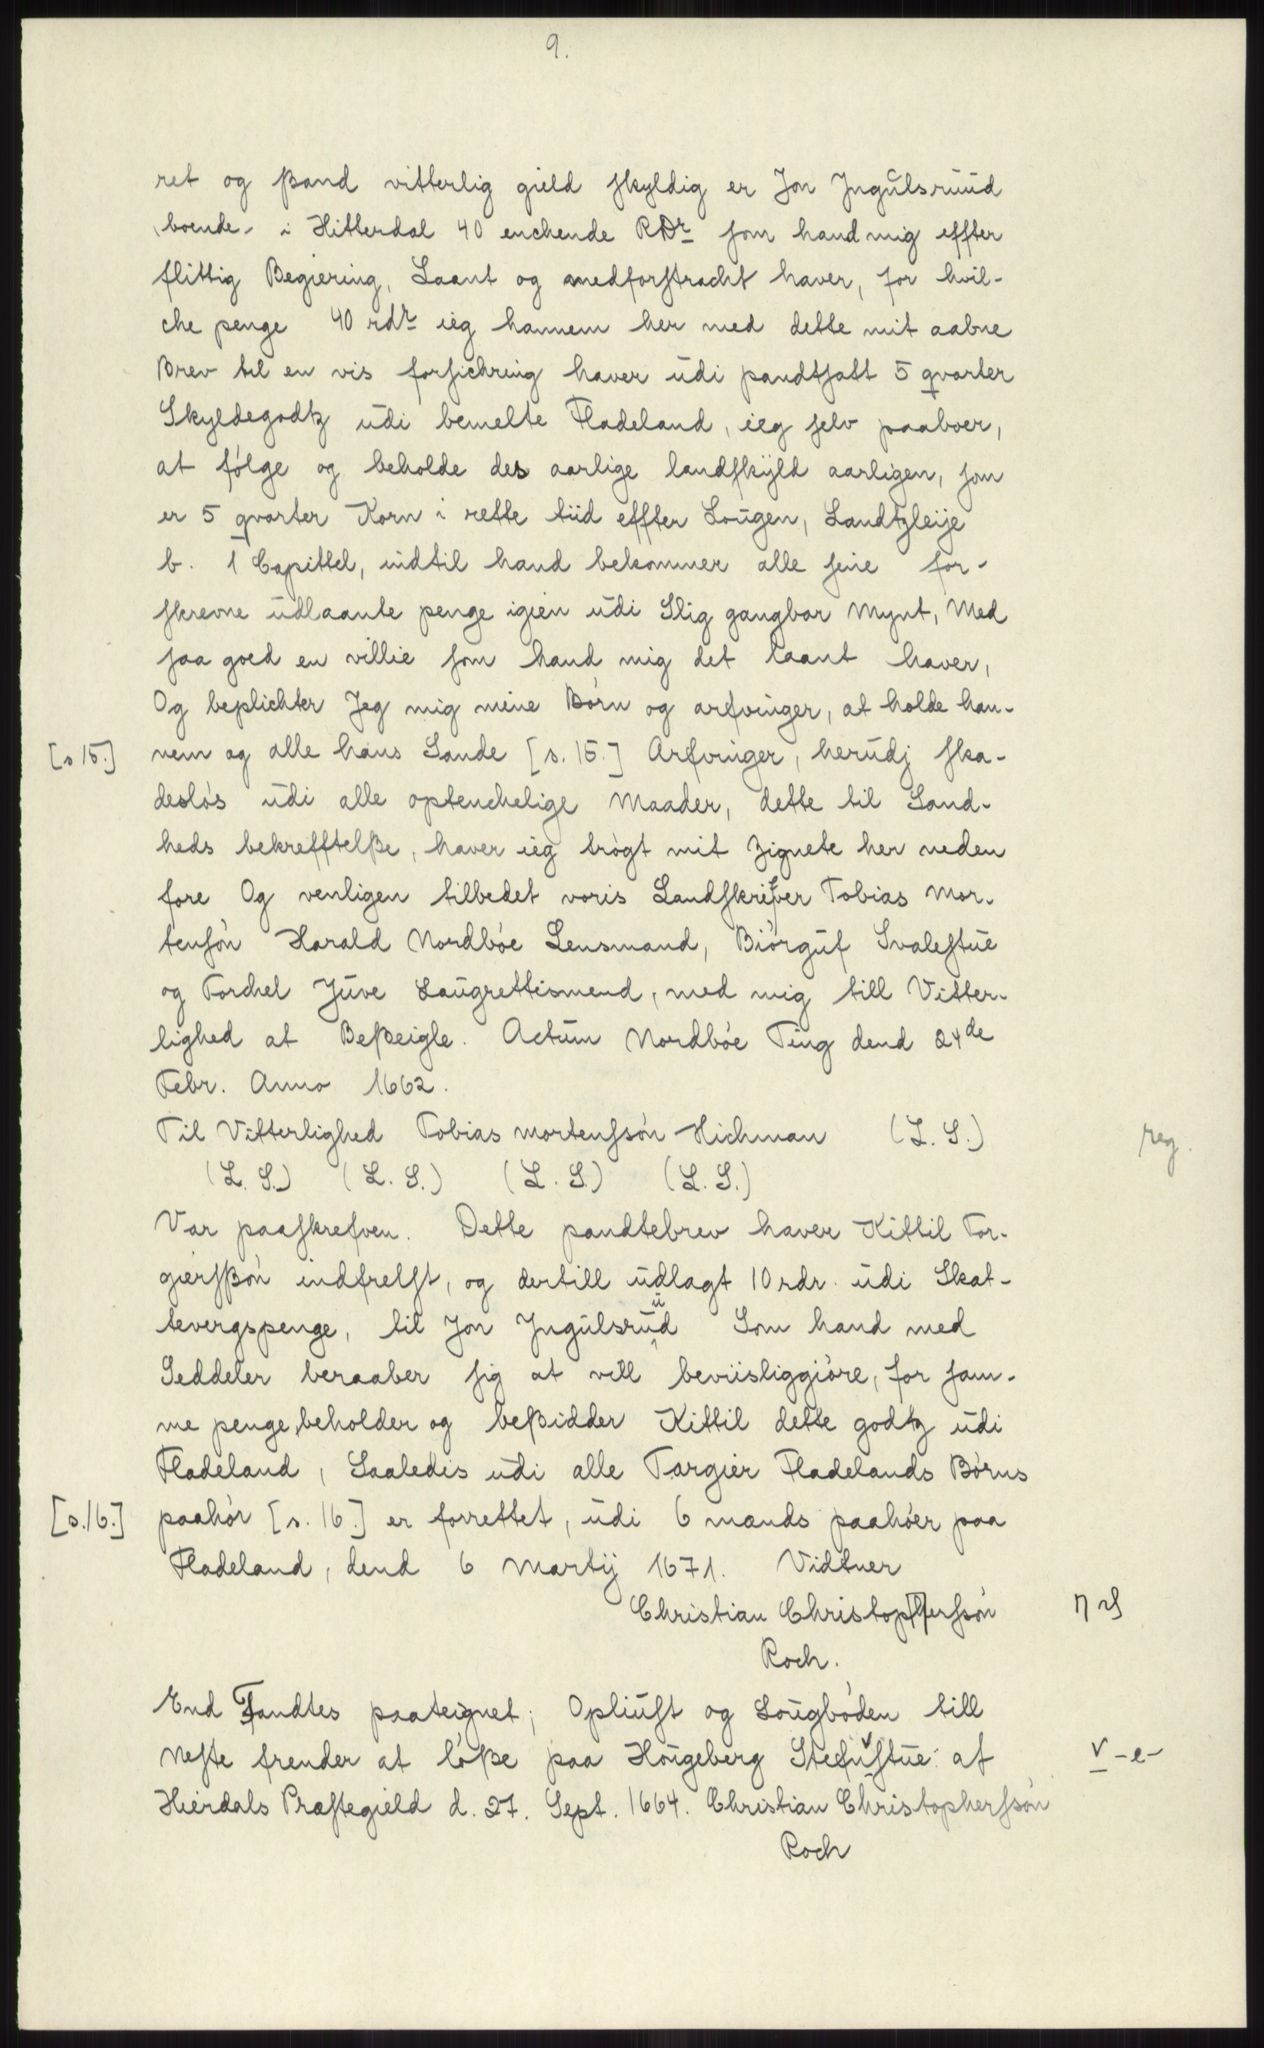 9.
ret og ßand vitterlig gield skyldig er Jon Jngulsruud
boende i Hitterdal 40 enchende RDr som hand mig effter
flittig Begiering, Laant og medforstracht haver, for hvil-
che penge 40 rdr ieg hannem her med dette mit aabne
Brev til en vis forsichring haver udi pandtsatt 5 qvarter
Skyldegodtz udi bemelte Fladeland, ieg selv paaboer,
at følge og beholde des aarlige landskÿld aarligen, som
er 5 qvarter Korn i rette tiid effter Lougen, Landtzleije
b. 1 Capittel, indtil hand bekommer alle sine for-
skrevne udlaante penge igien udi Slig gangbar Mynt, Med
saa goed en villie som hand mig det laant haver,
Og beplichter Jeg mig mine Børn og arfvinger, at holde han-
[s 15.] nem og alle hans Sande [s. 15.] Arfvinger, herudj ska-
desløs udi alle optenchelige Maader, dette til Sand-
heds bekrefftelße, haver ieg trøgt mit Zignete her neden
fore Og venligen tilbedet voris Landskrifver Tobias Mor-
tensøn Harald Nordbøe Lensmand, Biørguf Svalestue
og Torchel Juve Laugrettismend, med mig till Vitter-
lighed at Beßeigle. Actum Nordbøe Ting dend 24de
Febr. Anno 1662.
Til Vitterlighed Tobias mortenssøn Hichman (L. S.) reg.
(L. S.) (L. S.) (L. S.) (L. S.)
Var paaskrefven. Dette pandtebrev haver Kittil Tor-
giersßøn indfrelst, og dertill udlagt 10 rdr. udi Skat-
tevergspenge, til Jon Jngulsruud Som hand med
Seddeler beraaber sig at vill beviisliggiøre, for sam-
me penge, beholder og beßidder Kittil dette godtz udi
Fladeland, Saaledis udi alle Targier Fladelands Børns
[s. 16.] paahør [s. 16.] er forrettet, udi 6 mænds paahøer paa
Fladeland, dend 6 Martij 1671. Vidtner
Christian Christophersøn
Roch.
End Fandtes paateignet; Opliust og Lougbøden till
Neste frender at løße paa Hougeberg Stefvstue af v -e-
Hierdals Præstegield d. 27. Sept. 1664. Christian Christopherssøn
Roch